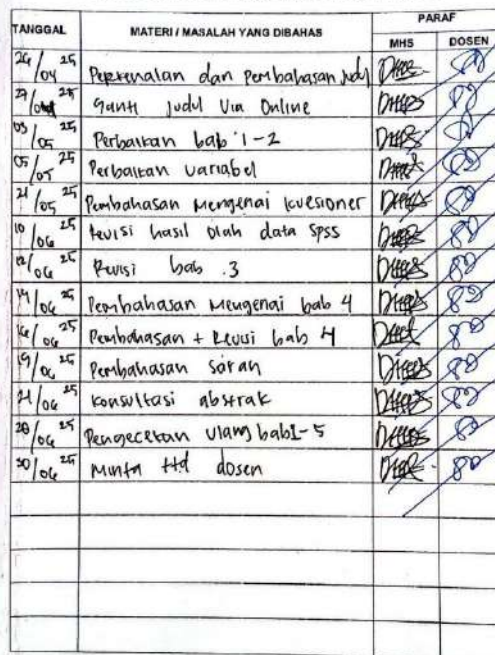 TANGGAL MATERI / MASALAH YANG DIBAHAS PARAF
MHS DOSEN
24/04 25 Perkenalan dan Pembahasan Judul
27/04 25 ganti judul Via Online
03/05 25 Perbaikan bab 1-2
05/05 25 Perbaikan variabel
21/05 25 Pembahasan Mengenai kuesioner
10/06 25 Revisi hasil olah data SPSS
12/06 25 Revisi bab .3
14/06 25 Pembahasan Mengenai bab 4
16/06 25 Pembahasan + Revisi bab 4
19/06 25 Pembahasan saran
21/06 25 Konsultasi abstrak
28/06 25 Pengecekan Ulang bab 1-5
30/06 25 Minta ttd dosen